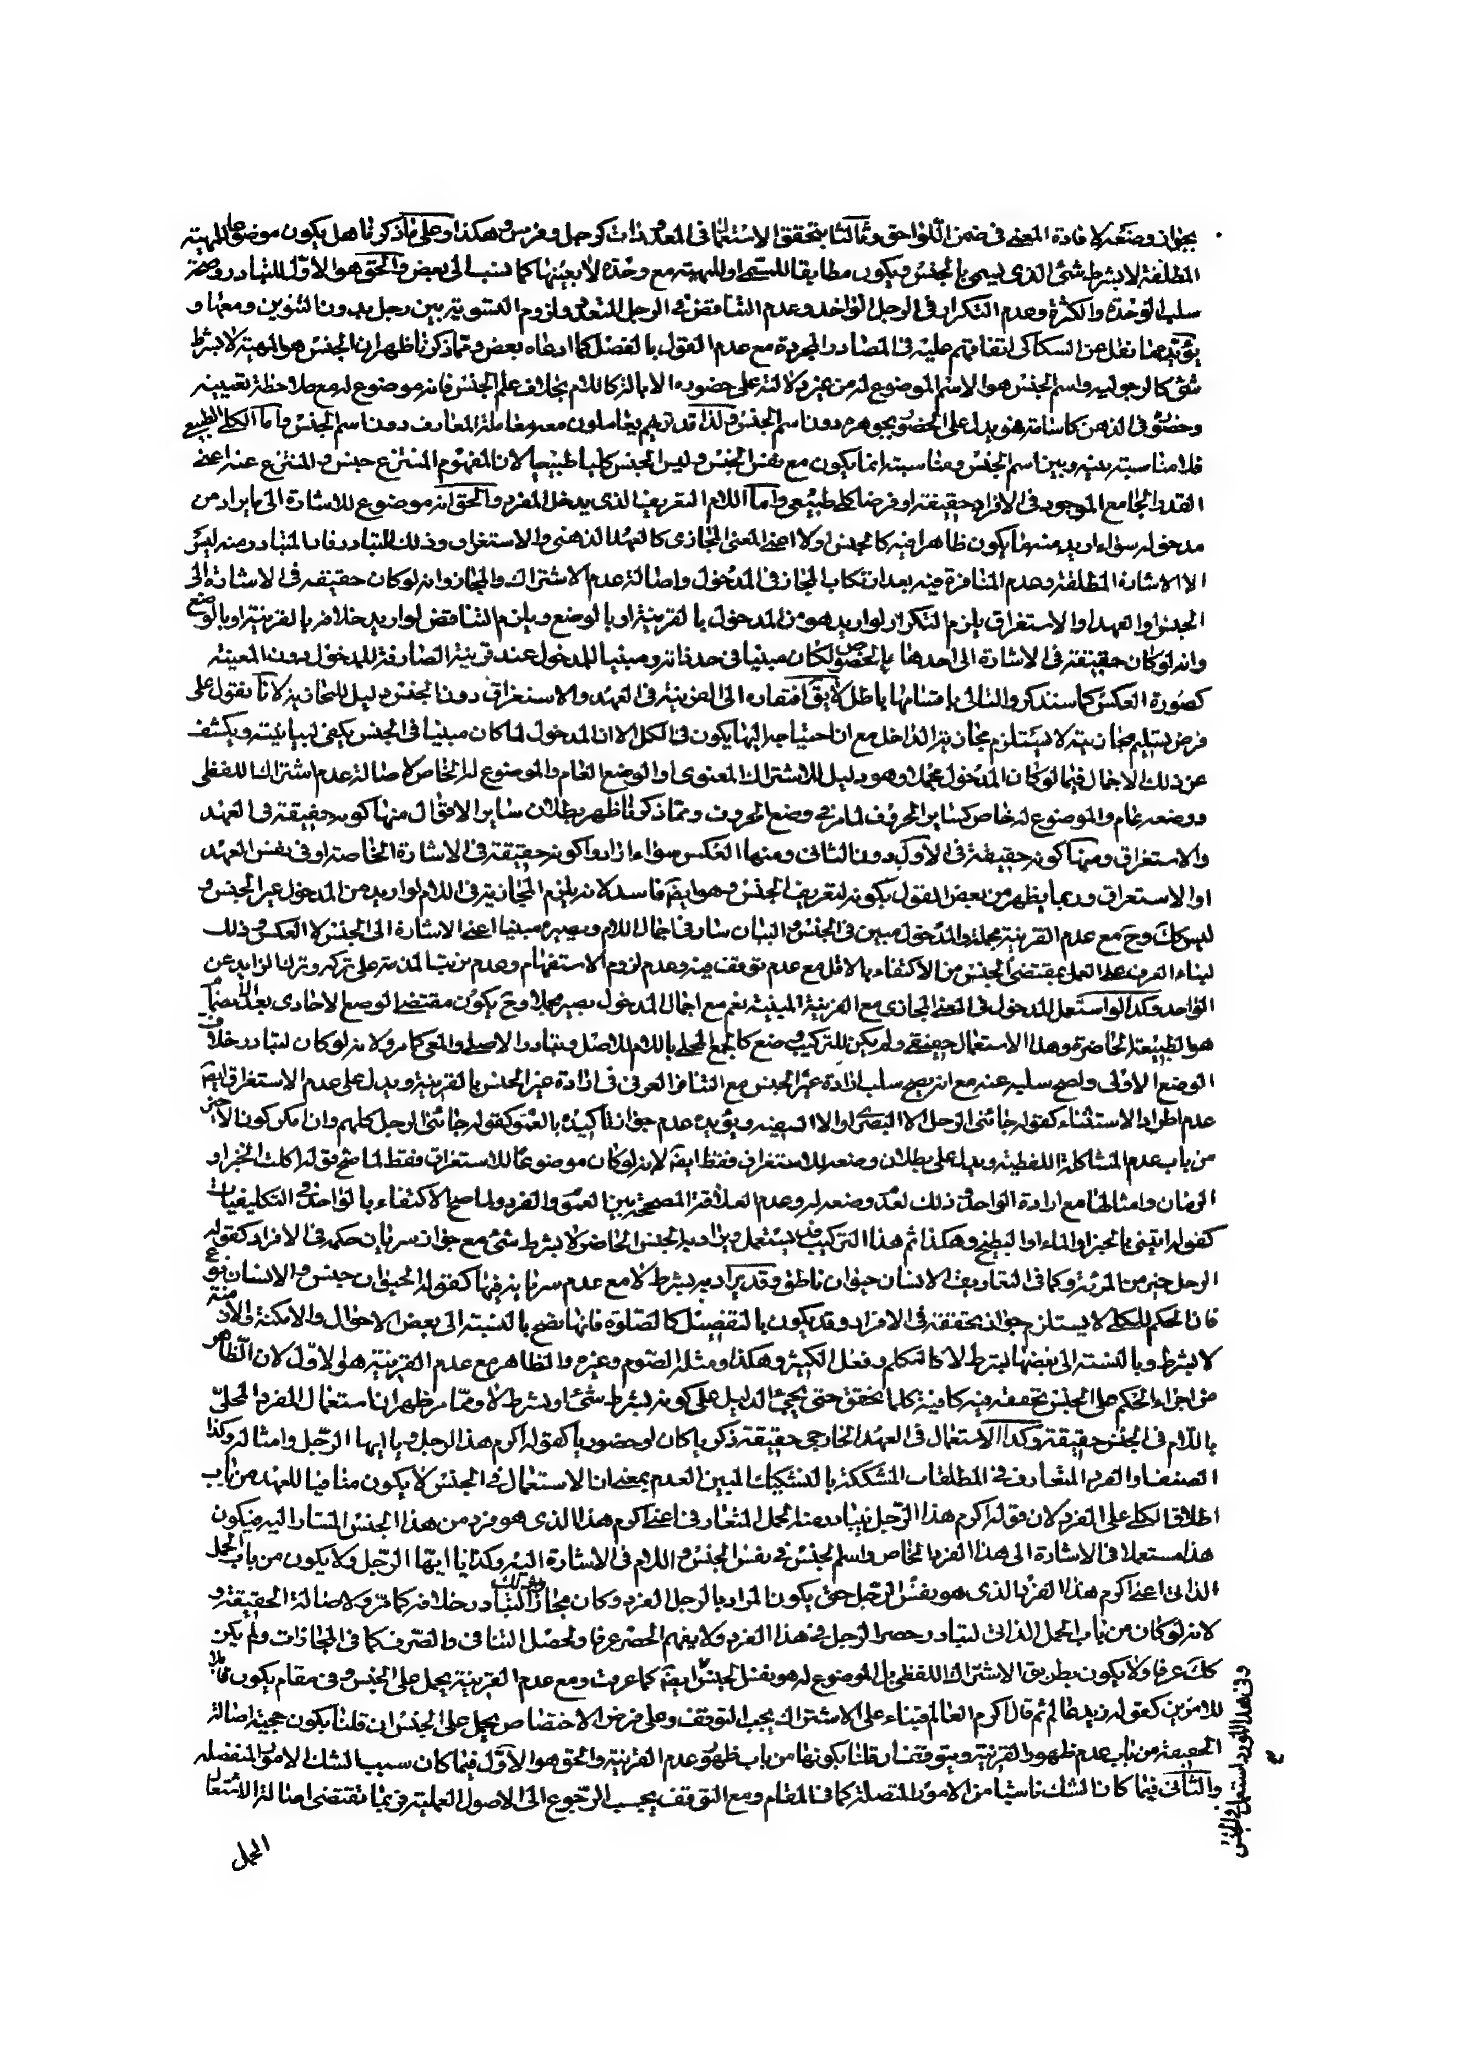 بجواز وضعه لافادة المعنى فى ضمن اللواحق وثالثا بتحقق الاستعمال فى المعدودات كرجل وفرس وهكذا وعلى ما ذكرنا هل يكون موضوعا للمهية
المطلقة لا بشرط شئ الذى يسمى بالجنس ويكون مطابقا للمسمى او للمهية مع وحدة لا بعينها كما نسب الى بعض والحق هو الاول للتبادر وصحة
سلب الوحدة والكثرة وعدم التكرار فى الرجل الواحد وعدم التناقض فى الرجل المتعدد ولزوم التسوية بين رجل بدون التنوين ومعها و
يؤيده ما نقل عن السكاكى اتفاقهم عليه فى المصادر المجردة مع عدم القول بالفصل كما ادعاه بعض ومما ذكرنا ظهر ان الجنس هو المهية لا بشرط
شئ كالرجولية واسم الجنس هو الاسم الموضوع له من غير دلالته على حضوره الا بالة كاللام بخلاف علم الجنس فانه موضوع له مع ملاحظة تعيينه
وحضوره فى الذهن كاسامة فهو يدل على الحضور بجوهره دون اسم الجنس ولذا قد تريهم يعاملون معه معاملة المعارف دون اسم الجنس واما الكلى الطبيعى
فلا مناسبة بينه وبين اسم الجنس ومناسبته انما يكون مع نفس الجنس وليس الجنس كليا طبيعيا لان المفهوم المنتزع جنس والمنتزع عنه اعنى
القدر الجامع الموجود فى الافراد حقيقة او فرضا كلى طبيعى واما اللام التعريف الذى يدخل المفرد والحق انه موضوع للاشارة الى ما يراد من
مدخوله سواء اريد منه ما يكون ظاهرا فيه كالجنس او لا اعنى المعنى المجازى كالعهد الذهنى والاستغراق وذلك للتبادر فان المتبادر منه ليس
الا الاشارة المطلقة وعدم المنافرة فيه بعد ارتكاب المجاز فى المدخول واصالة عدم الاشتراك والمجاز وانه لو كان حقيقة فى الاشارة الى
الجنس او العهد او الاستغراق يلزم التكرار لو اريد هو من المدخول بالقرينة او بالوضع ويلزم التناقض لو اريد خلافه بالقرينة او بالوضع
وانه لو كان حقيقة فى الاشارة الى احدها بالخصوص لكان مبينا فى حد ذاته ومبينا للمدخول عند قرينة الصارفة للمدخول دون المعينة
كصورة العكس كما سنذكر والتالى باقسامها باطل لا يق افتقاره الى القرينة فى العهد والاستغراق دون الجنس دليل للمجازية لانا نقول على
فرض تسليم مجازيته لا يستلزم مجازية الداخل مع ان احتياجه اليها يكون فى الكل الا ان المدخول لما كان مبينا فى الجنس يكفى لمبيانيته ويكشف
عن ذلك الاجمال فيما لو كان المدخول مجملا وهو دليل للاشتراك المعنوى او الوضع العام والموضوع له الخاص لاصالة عدم اشتراك اللفظى
ووضعه عام والموضوع له خاص كساير الحروف لما مر فى وضع الحروف ومما ذكرنا ظهر بطلان ساير الاقوال منها كونه حقيقة فى العهد
والاستغراق ومنها كونه حقيقة فى الاول دون الثانى ومنها العكس سواء ارادوا كونه حقيقة فى الاشارة الخاصة او فى نفس العهد
او الاستغراق وربما يظهر من بعض القول بكونه لتعريف الجنس وهو ايضا فاسد لانه يلزم المجازية فى اللام لو اريد من المدخول غير الجنس و
ليس كك وح مع عدم القرينة مجملة والمدخول مبين فى الجنس والبيان سار فى اجمال اللام ويصيره مبينا اعنى الاشارة الى الجنس لا العكس وذلك
لبناء العرف على العمل بمقتضى الجنس من الاكتفاء بالاقل مع عدم توقف فيه وعدم لزوم الاستفهام وعدم ترتب المذمة على تركه وترك الزايد عن
الواحد وكذا لو استعمل المدخول فى المعنى المجازى مع القرينة المبينة نعم مع اجمال المدخول يصير مجملا وح يكون مقتضى الوضع الاحادى بعد الانضمام
هو الطبيعة الحاضرة وهذا الاستعمال حقيقة ولم يكن للتركيب وضع كالجمع المحلى باللام للاصل وتبادر الاصلى والمعنى كما مر ولانه لو كان لتبادر خلاف
الوضع الاولى ولصح سلبه عنه مع انه يصح سلب ارادة غير الجنس مع التنافر العرفى فى ارادة غير الجنس بالقرينة ويدل على عدم الاستغراق ايضا
عدم اطراد الاستثناء كقوله جائنى الرجل الا البصرى او الا السفيه ويؤيده عدم جواز تاكيده بالعموم كقوله جائنى الرجل كلهم وان امكن كون الاخير
من باب عدم المشاكلة اللفظية ويدل على بطلان وضعه للاستغراق فقط ايضا لانه لو كان موضوعا للاستغراق فقط لما صح قوله اكلت الخبز او
الرمان وامثالها مع ارادة الواحد وذلك لعدم وضعه له وعدم العلاقة المصححة بين العموم والفرد ولما صح الاكتفاء بالواحد فى التكليفيات
كقوله ايتنى بالخبز او الماء او البطيخ وهكذا ثم هذا التركيب قد يستعمل ويراد به الجنس الحاضر لا بشرط شئ مع جواز سريان حكمه فى الافراد كقوله
الرجل خير من المرئة وكما فى التعاريف الانسان حيوان ناطق وقد يراد به بشرط لا مع عدم سرنا به فيها كقوله الحيوان جنس والانسان نوع
فان الحكم للكلى لا يستلزم جواز تحققه فى الافراد وقد يكون بالتفصيل كالصلوة فانها تصح بالنسبة الى بعض الاحوال والامكنة والازمنة
لا بشرط وبالنسبة الى بعضها بشرط لا كالتكلم وفعل الكثير وهكذا ومثله الصوم وغيره والظاهر مع عدم القرينة هو الاول لان الظاهر
من اجراء الحكم على الجنس تحققه فيه كاينة كلما تحقق حتى يجئ الدليل على كونه بشرط شئ او بشرط لا ومما مر ظهر ان استعمال المفرد المحلى
باللام فى الجنس حقيقة وكذا الاستعمال فى العهد الخارجى حقيقة ذكريا كان او حضوريا كقوله اكرم هذا الرجل ويا ايها الرجل وامثاله وكذا
الصنف او الفرد المتعارف فى المطلقات المشككة بالتشكيك المبين العدم بمعنى ان الاستعمال فى الجنس لا يكون منافيا للعهد من باب
اطلاق الكلى على الفرد لان قوله اكرم هذا الرجل يتبادر منه الحمل المتعارف اعنى اكرم هذا الذى هو فرد من هذا الجنس المشار اليه فيكون
هذا مستعملا فى الاشارة الى هذا الفرد الخاص واسم الجنس فى نفس الجنس واللام فى الاشارة اليه وكذا يا ايها الرجل ولا يكون من باب الحمل
الذاتى اعنى اكرم هذا الفرد الذى هو نفس الرجل حتى يكون المراد بالرجل الفرد وكان مجازا لتبادر خلافه كما مر ولاصالة الحقيقة و
لانه لو كان من باب الحمل الذاتى لتبادر حصر الرجل فى هذا الفرد ولا يفهم الحصر عرفا ولحصل التنافى والصرف كما فى المجازات ولم يكن
كك عرفا ولا يكون بطريق الاشتراك اللفظى بل الموضوع له هو نفس الجنس ايضا كما عرفت ومع عدم القرينة يحمل على الجنس وفى مقام يكون قابلا
للامرين كقوله زيد عالم ثم قال اكرم العالم فبناء على الاشتراك يجب التوقف وعلى فرض الاختصاص يحمل على الجنس ان قلنا يكون حجية اصالة
الحقيقة من باب عدم ظهور القرينة ويتوقف ان قلنا بكونها من باب ظهور عدم القرينة والحق هو الاول فيما كان سبب الشك الامور المنفصلة
والثانى فيما كان الشك ناشيا من الامور المتصلة كما فى المقام ومع التوقف يجب الرجوع الى الاصول العملية فربما تقتضى اصالة الاشتغال
المحمل
وفى هذا المورد استعمل فى الجنس